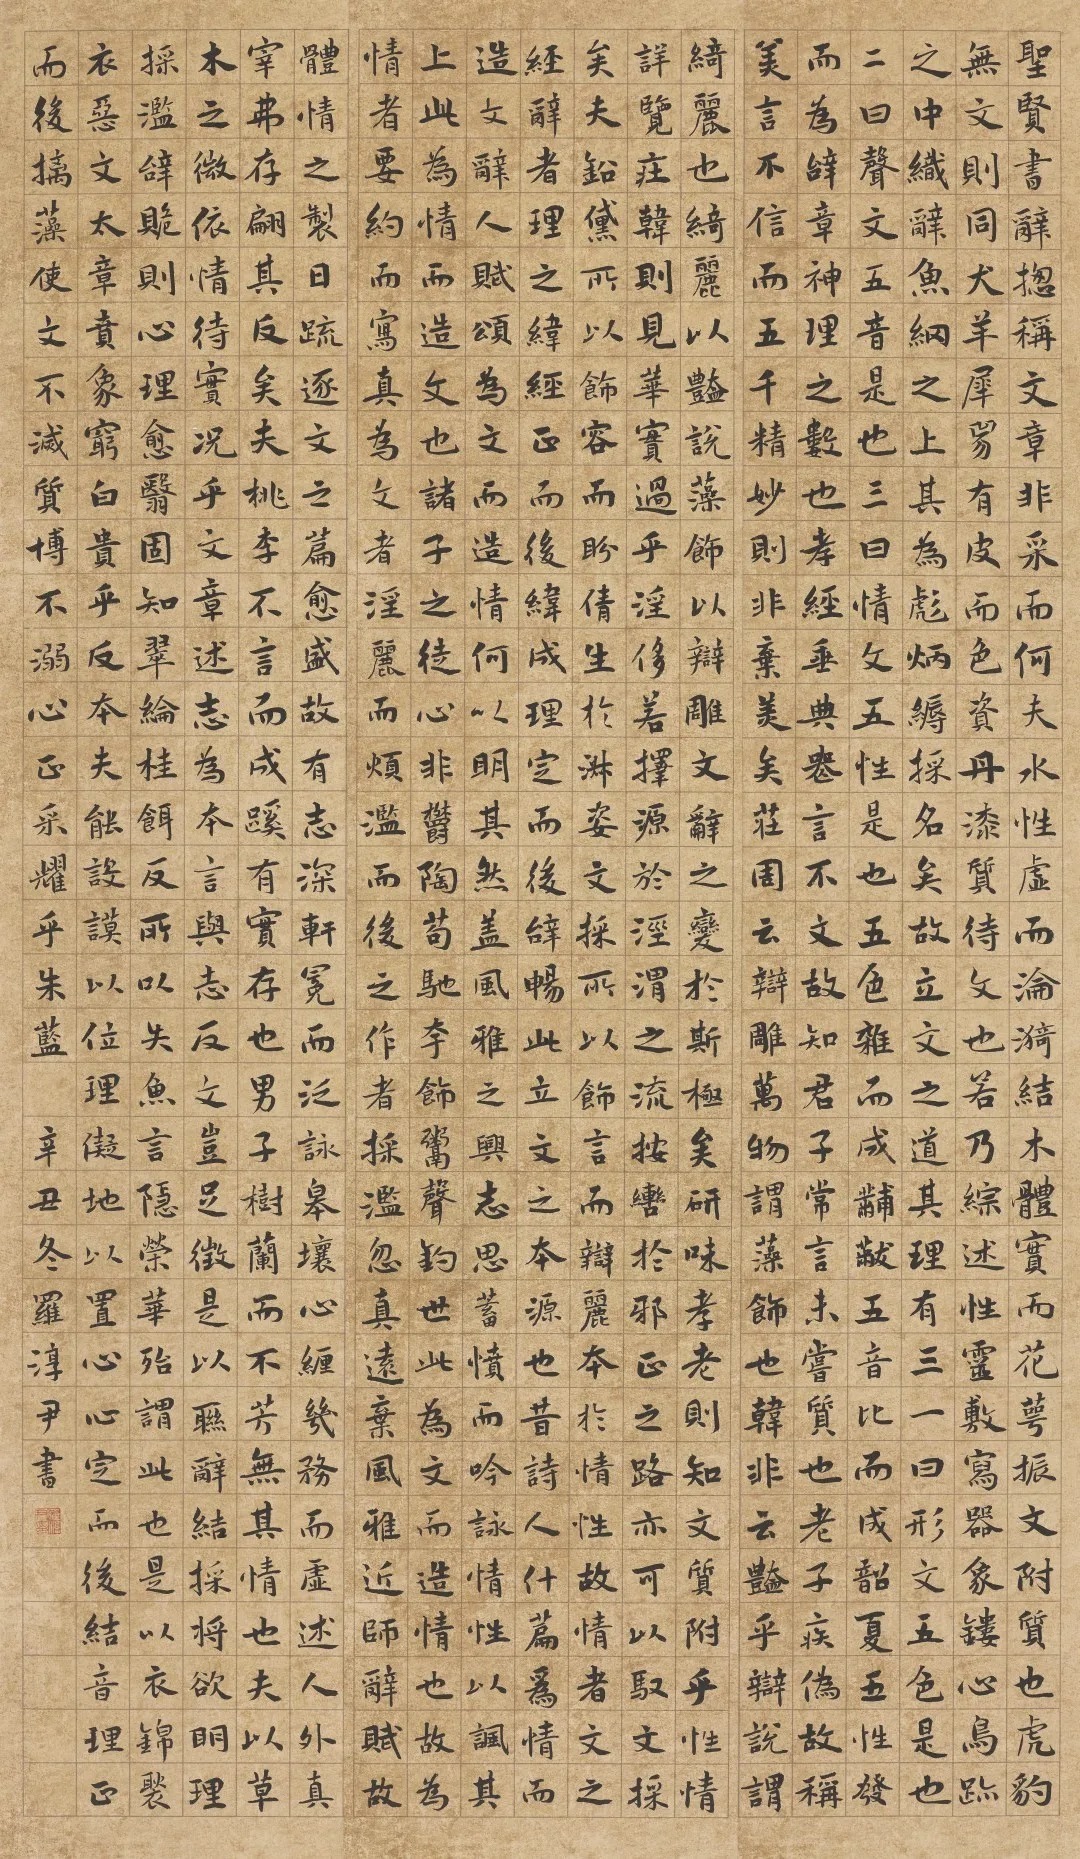 聖賢書辭揔稱文章非采而何夫水性虛而淪漪結木體實而花萼振文附質也虎豹
無文則同犬羊犀兕有皮而色資丹漆質待文也若乃綜述性靈敷寫器象鏤心鳥跡
之中織辭魚網之上其為彪炳縟採名矣故立文之道其理有三一曰形文五色是也
二曰聲文五音是也三曰情文五性是也五色雜而成黼黻五音比而成韶夏五性發
而為辭章神理之數也孝經垂典喪言不文故知君子常言未嘗質也老子疾偽故稱
美言不信而五千精妙則非棄美矣莊周云辯雕萬物謂藻飾也韓非云豔乎辯說謂
綺麗也綺麗以豔說藻飾以辯雕文辭之變於斯極矣研味孝老則知文質附乎性情
詳覽莊韓則見華實過乎淫侈若擇源於涇渭之流按轡於邪正之路亦可以馭文採
矣夫鉛黛所以飾容而盼倩生於淋姿文採所以飾言而辯麗本於情性故情者文之
經辭者理之緯經正而後緯成理定而後辭暢此立文之本源也昔詩人什篇為情而
造文辭人賦頌為文而造情何以明其然盖風雅之興志思蓄憤而吟詠情性以諷其
上此為情而造文也諸子之徒心非鬱陶苟馳夸飾鬻聲釣世此為文而造情也故為
情者要約而寫真為文者淫麗而煩濫而後之作者採濫忽真遠棄風雅近師辭賦故
體情之製日疏逐文之篇愈盛故有志深軒冕而泛詠皋壤心纏幾務而虛述人外真
宰弗存翩其反矣夫桃李不言而成蹊有實存也男子樹蘭而不芳無其情也夫以草
木之微依情待實況乎文章述志為本言與志反文豈足徵是以聯辭結採將欲明理
採濫辭詭則心理愈翳固知翠綸桂餌反所以失魚言隱榮華殆謂此也是以衣錦褧
衣惡文太章賁象窮白貴乎反本夫能設謨以位理儗地以置心心定而後結音理正
而後摛藻使文不滅質博不溺心正采耀乎朱藍 辛丑冬羅淳尹書